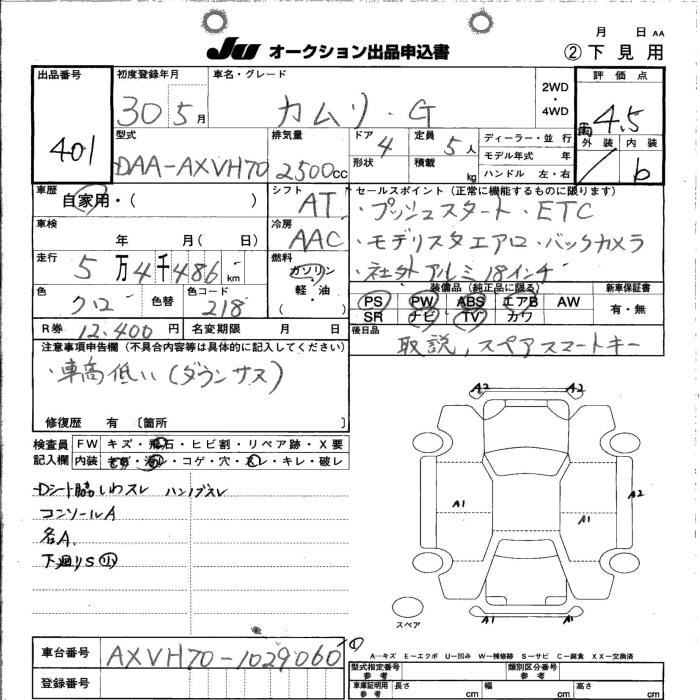 月 日 AA
JU オークション出品申込書 ②下見用
出品番号 初度登録年月 車名・グレード 評価点
401 30 5月 カムリ・G 2WD・4WD 4.5
外装 内装
b
型式 排気量 ドア 定員 ディーラー・並行
DAA-AXVH70 2500cc 4 5人 モデル年式 年
形状 積載 kg ハンドル 左・右
車歴 シフト セールスポイント(正常に機能するものに限ります)
自家用・( ) AT ・プッシュスタート・ETC
車検 冷房 ・モデリスタエアロ・バックカメラ
年 月( 日) AAC ・社外アルミ18インチ
走行 燃料 装備品(純正品に限る) 新車保証書
5万4千486km ガソリン PS PW ABS エアB AW 有・無
色 色替 色コード 軽・油 SR ナビ TV カワ
クロ 218 ( )
R券 12.400円 名変期限 月 日 後日品
取説,スペアスマートキー
注意事項申告欄(不具合内容等は具体的に記入してください)
・車高低い(ダウンサス)
修復歴 有 〔箇所 〕
検査員 FW キズ・飛石・ヒビ割・リペア跡・X要
記入欄 内装 キズ・汚レ・コゲ・穴・スレ・キレ・破レ
Dシート脇しわスレ ハンドブスレ
コンソールA
各A.
下廻りS小
A2 A2
A1 A1 A2
A1 A1
スペア
A―キズ E―エクボ U―凹み W―補修跡 S―サビ C―腐食 XX―交換済
車台番号 AXVH70-1029060 ①
登録番号
型式指定番号 参考 類別区分番号 参考
車庫証明用 参考 長さ cm 幅 cm 高さ cm